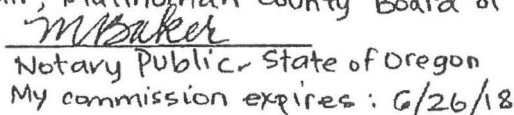 County Board of
MBaker
Notary Public, State of Oregon
My commission expires: 6/26/18